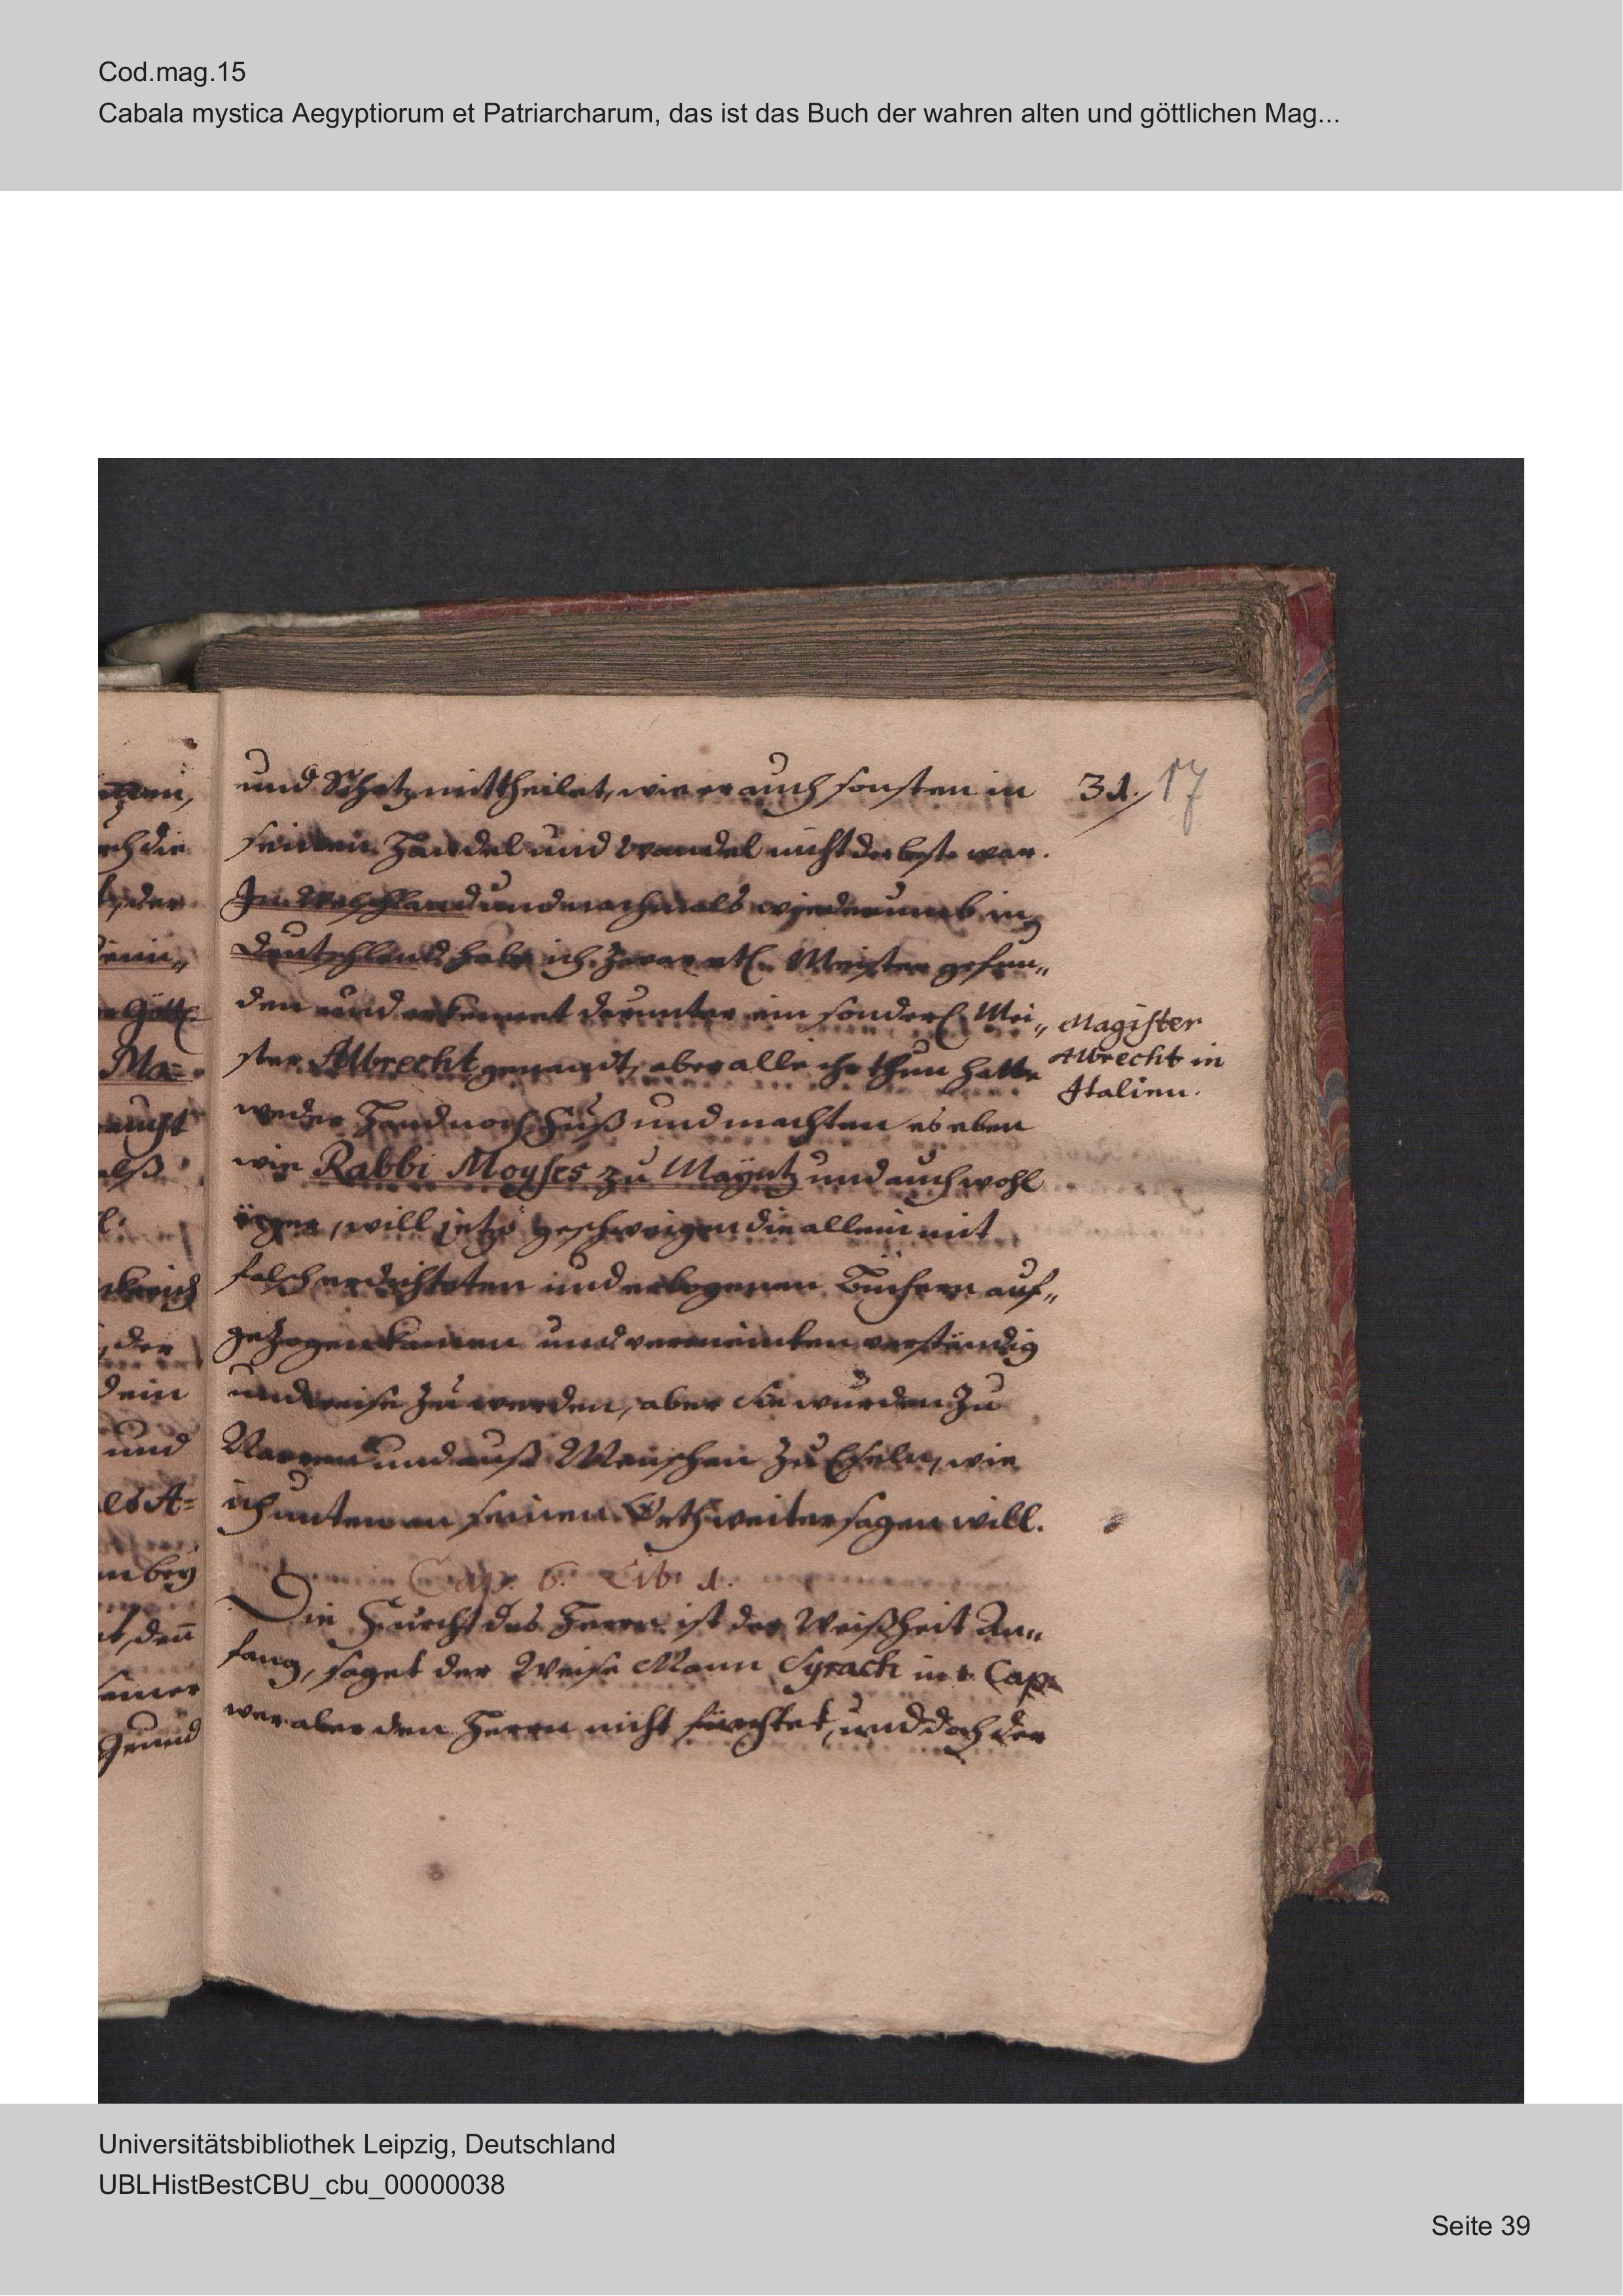 Cod.mag.15
Cabala mystica Aegyptiorum et Patriarcharum, das ist das Buch der wahren alten und göttlichen Mag...
und Schatz mittheilet, wie er auch sonsten in
31. 17
seinen Handel und Wandel nicht der beste war.
In Welschland und nachmals wiederumb in
Deutschland habe ich zwar etl. Meister gefun„
den und erkennet darunter ein sonderl. Mei„
ster Albrecht genandt, aber alle ihr thun hatte
Magister
Albrecht in
Italien.
weder Hand noch Fuß und machten es eben
wie Rabbi Moyses zu Mayntz und auch wohl
ärger, will jetzo geschweigen die allein mit
falsch erdichteten und erlogenen Büchern auf„
gezogen kamen und vermeinten verständig
und weise zu werden, aber sie wurden zu
Narren und auß Menschen zu Eseln, wie
ich unten an seinen Orth weiter sagen will.
Cap. 6. Lib. 1.
Die Furcht des Herrn ist der Weißheit An„
fang, saget der Weise Mann Syrach in 1. Cap.
wer aber den Herrn nicht fürchtet, und doch der
ch die
der
Gött.
Ma=
alß
der
dein
und
es A=
bey
den̄
seiner
Grund
Universitätsbibliothek Leipzig, Deutschland
UBLHistBestCBU_cbu_00000038
Seite 39